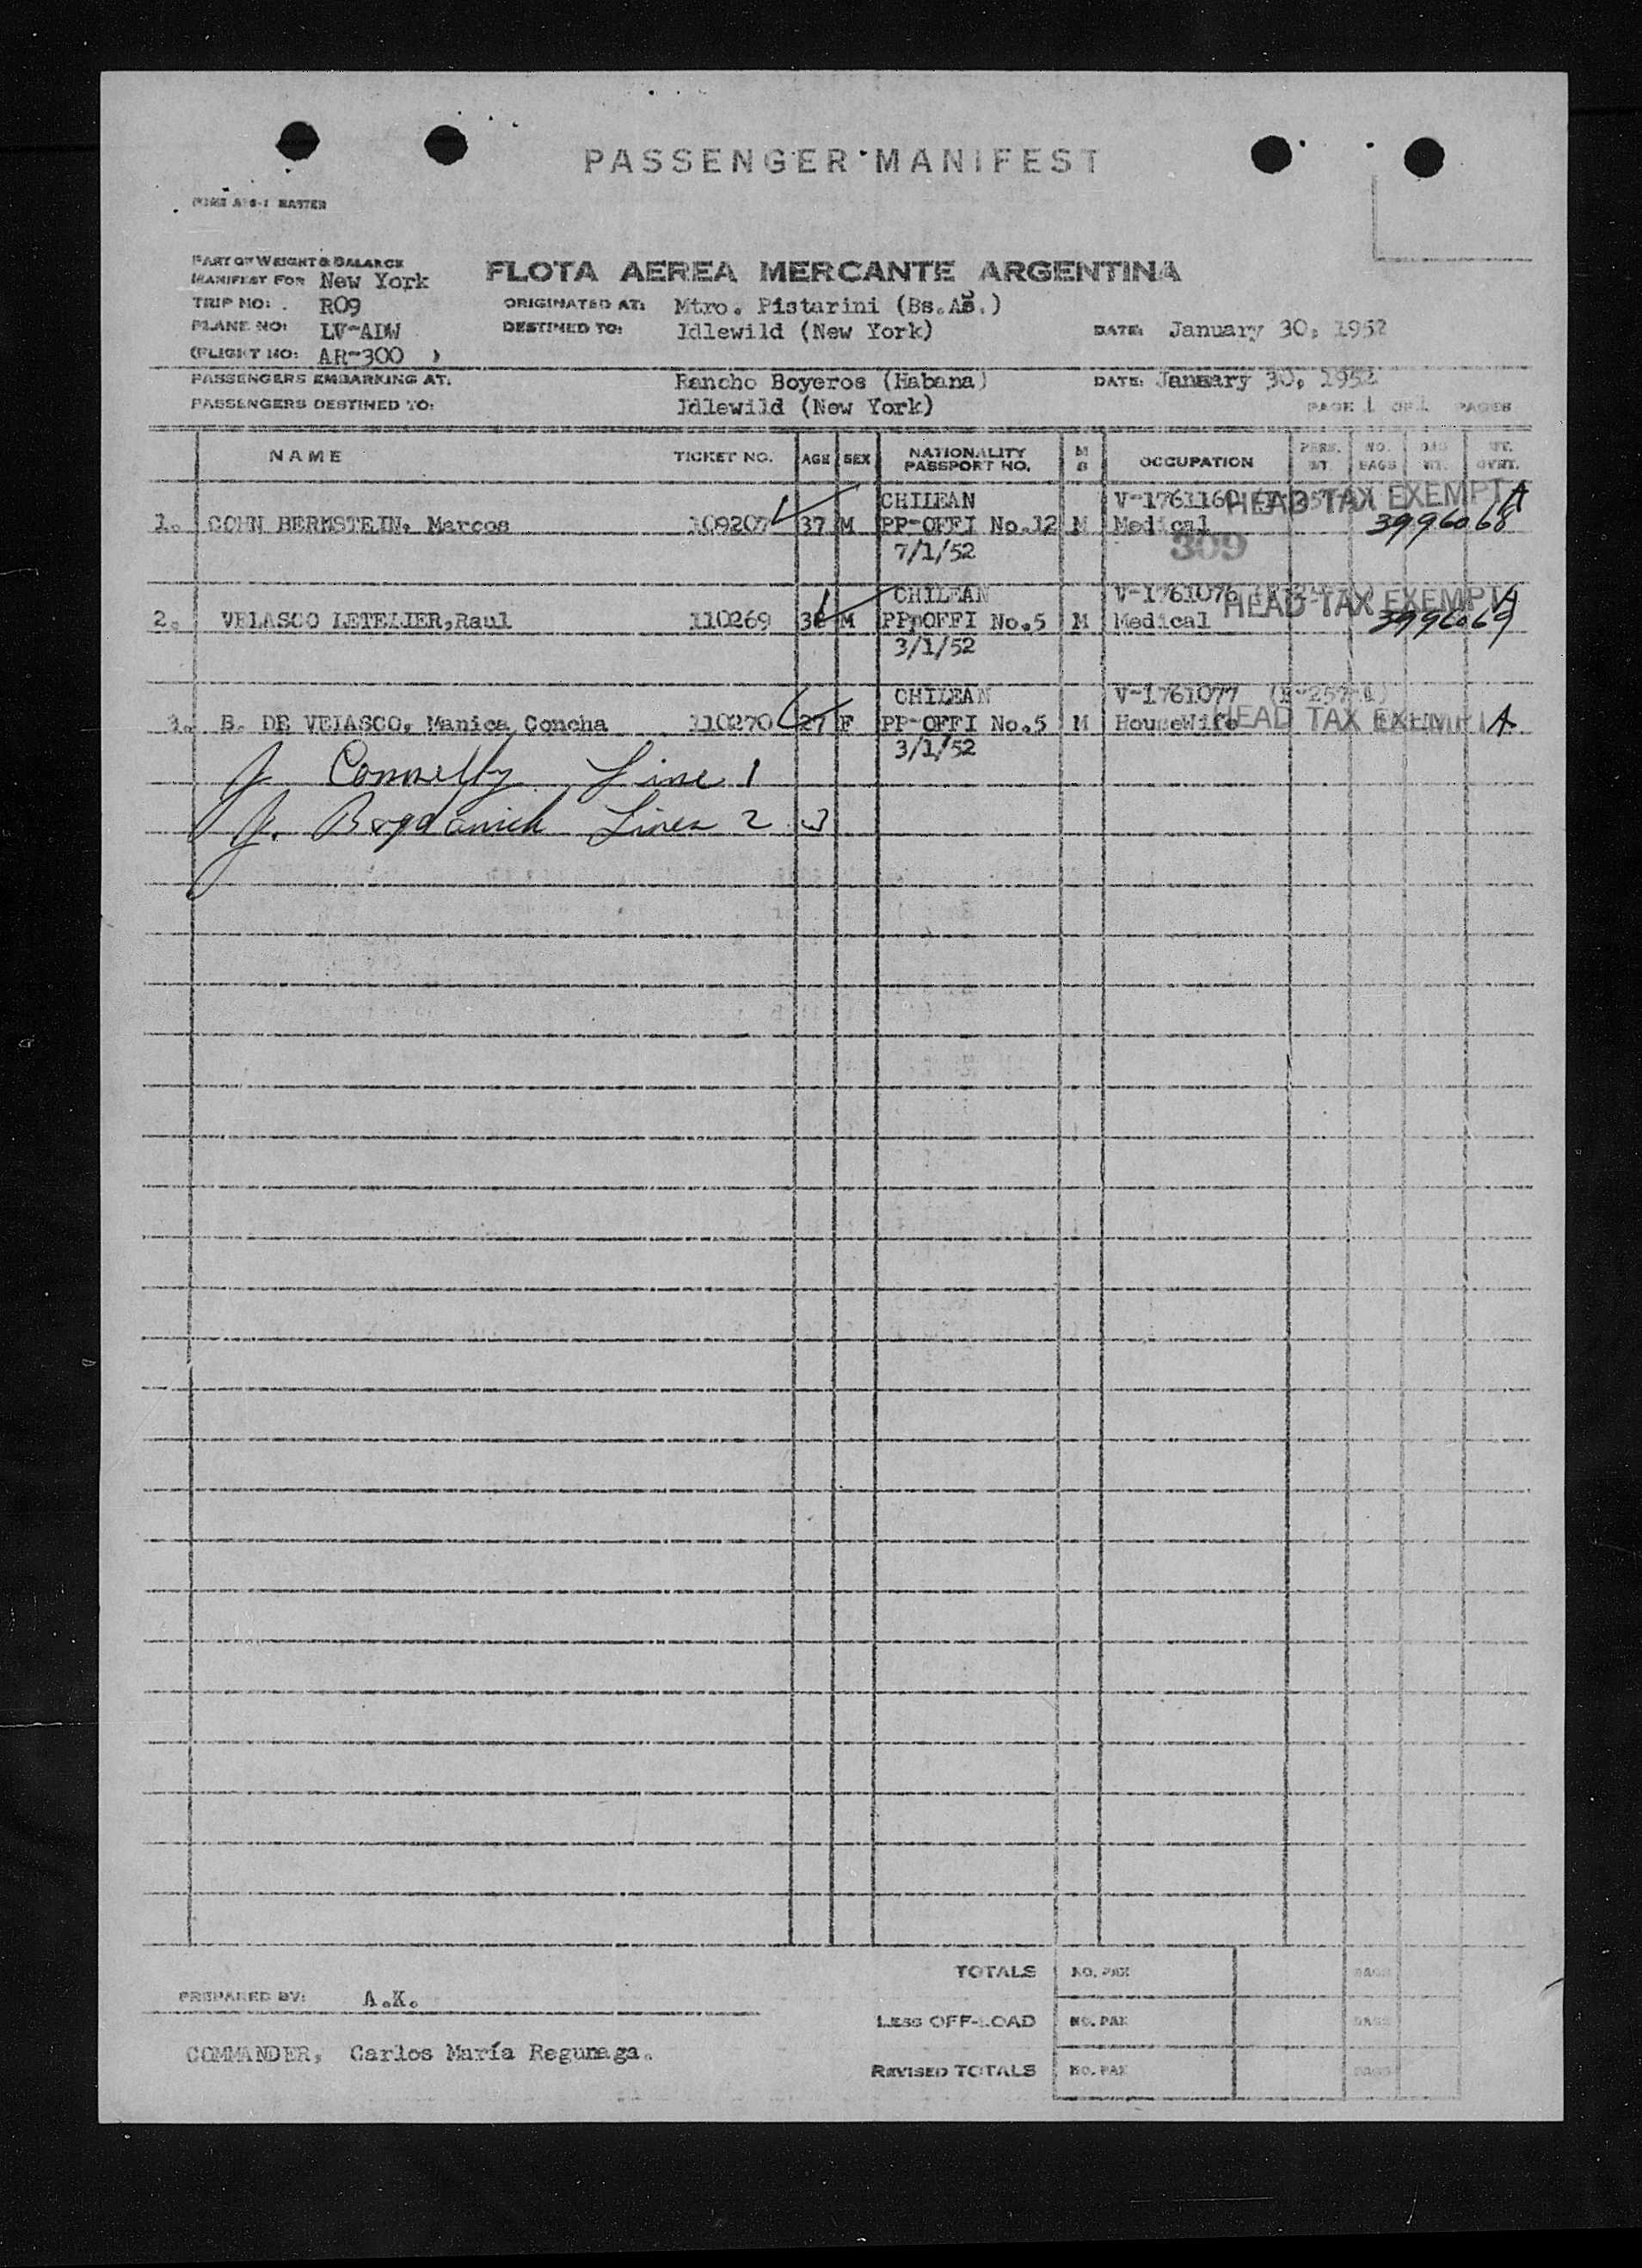 PASSENGER MANIFEST
PART OF WEIGHT & BALANCE
MANIFEST FOR New York
FLOTA AEREA MERCANTE ARGENTINA
TRIP NO: R09
ORIGINATED AT: Mtro. Pistarini (Bs.As.)
PLANE NO: LV-ADW
DESTINED TO: Idlewild (New York)
DATE: January 30, 1952
(FLIGHT NO: AR-300 )
PASSENGERS EMBARKING AT: Rancho Boyeros (Habana) DATE: January 30, 1952
PASSENGERS DESTINED TO: Idlewild (New York) PAGE 1 OF 1 PAGES
NAME TICKET NO. AGE SEX NATIONALITY PASSPORT NO. M S OCCUPATION PERS. WT. NO. BAGS BAG WT. WT. OVRT.
CHILEAN V-1761160 HEAD TAX EXEMPT A
1. COHN BERMSTEIN, Marcos 109207 37 M PP-OFFI No.12 M Medical 3996068
7/1/52 309
CHILEAN V-1761076 HEAD TAX EXEMPT A
2. VELASCO LETELIER,Raul 110269 M PPpOFFI No.5 M Medical 3996069
3/1/52
CHILEAN V-1761077
3. B. DE VELASCO, Manica Concha 110270 27 F PP-OFFI No.5 M HouseWife HEAD TAX EXEMPT A
3/1/52
J. Connelly Line 1
J. Bogdanich Lines 2 3
TOTALS NO. PAX BAGS
PREPARED BY: A.K.
LESS OFF-LOAD NO. PAX BAGS
COMMANDER, Carlos María Regunaga.
REVISED TOTALS NO. PAX BAGS